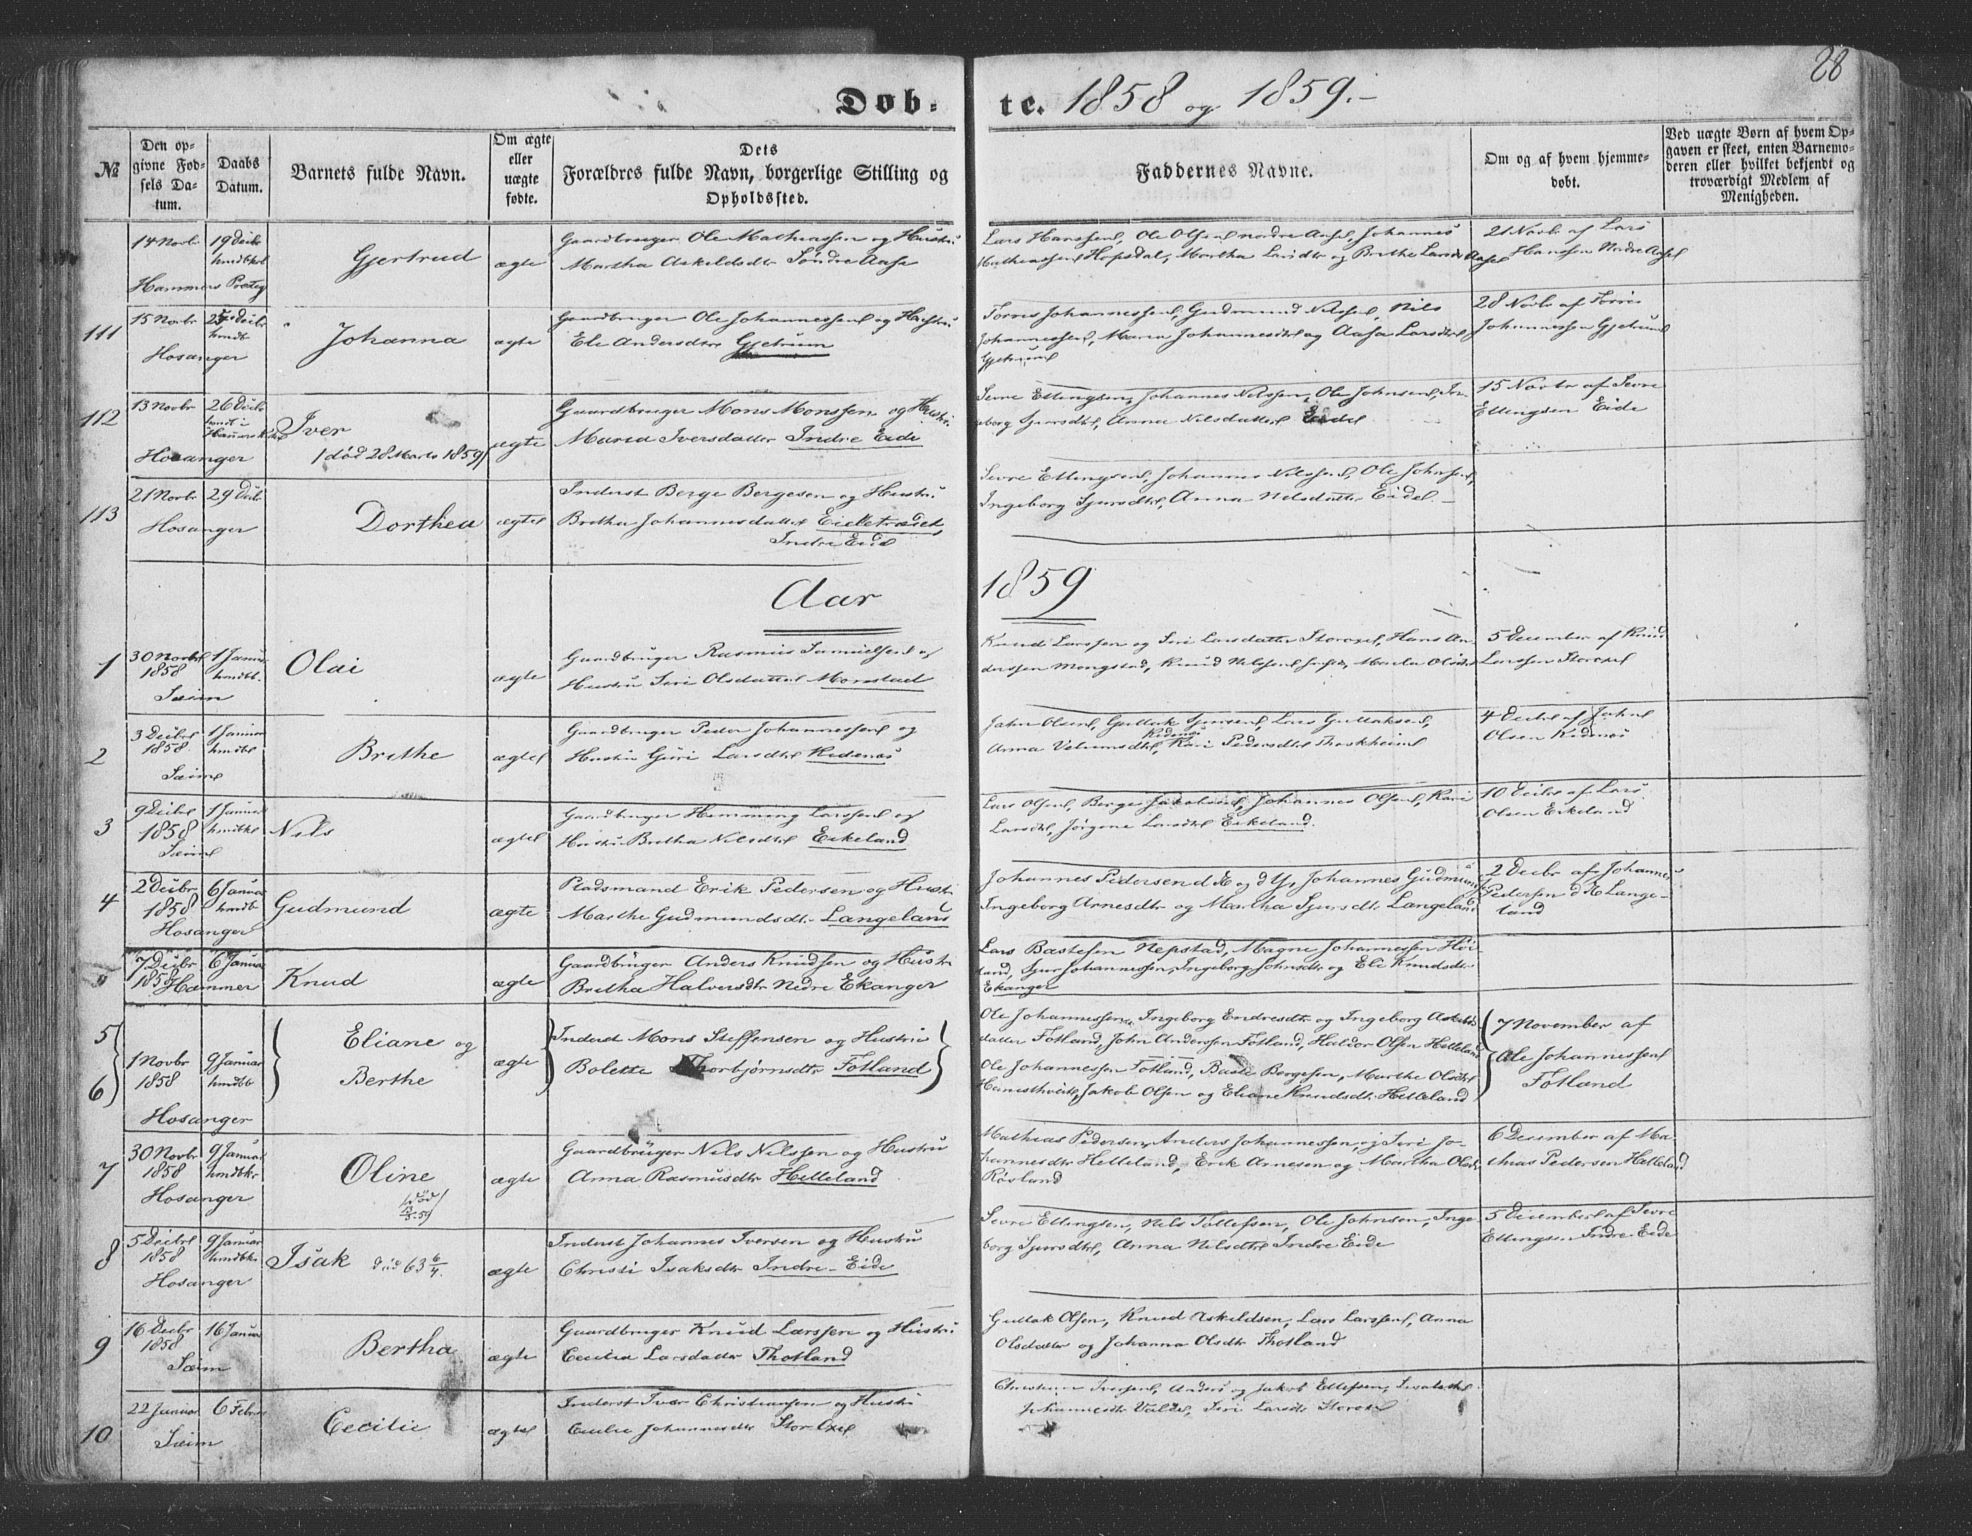 88
Døb-te. 1858 og 1859.-
№
Den op-
givne Fød-
sels Da-
tum.
Daabs
Datum.
Barnets fulde Navn.
Om ægte
eller
uægte
fødte.
Dets
Forældres fulde Navn, borgerlige Stilling og
Opholdssted.
Faddernes Navne.
Om og af hvem hjemme-
døbt.
Ved uægte Børn af hvem Op-
gaven er skeet, enten Barnemo-
deren eller hvilket bekjendt og
troværdigt Medlem af
Menigheden.
14 Novbr
19 Decbr
hmdbt
Hammers Prætg
Gjertrud
ægte
Gaardbruger Ole Mathiassen og Hustru
Martha Askeldsdtr Søndre Aase
Lars Hanssen, Ole Olsen nordre Aase, Johannes
Mathiassen Hopsdal, Martha Larsdtr og Brithe Larsdtr Aase
21 Novbr af Lars
Hanssen Nordre Aase
111
15 Novbr
Decbr
hmdbt
Hosanger
Johanna
ægte
Gaardbruger Ole Johannessen og Hustru
Eli Andersdtr Gjetrum
Torres Johannessen, Gudmund Nilsen, Nils
Johannessen, Maria Johannesdtr og Aasa Larsdtr
28 Novbr af Torres
Johannessen
112
13 Novbr
26 Decbr
Hosanger
Iver
/død 28 Marts 1859/
ægte
Gaardbruger Mons Monssen og Hustru
Marid Iversdatter Indre Eide
Sevre Ellingsen, Johannes Nilssen, Ole Johnsen, In-
geborg Sjursdtr, Anna Nilsdatter Eide
15 Novbr af Sevre
Ellingsen Eide
113
21 Novbr
29 Decbr
Hosanger
Dorthea
ægte
Inderst Berge Bergesen og Hustru
Bretha Johannesdatter Eidetræet,
Indre Eide
Sevre Ellingsen, Johannes Nilssen, Ole Johnsen,
Ingeborg Sjursdtr, Anna Nilsdatter Eide
Aar 1859
1
30 Novbr
1858
Sæim
1 Januar
hmdbt
Olai
ægte
Gaardbruger Rasmus Samuelsen og
Hustru Siri Olsdatter Monstad
Knud Larssen og Siri Larsdatter Storoxel, Hans An-
derssen Mongstad, Knud Nilssen
5 December af Knud
Larssen Storoxel
2
3 Decbr
1858
Sæim
1 Januar
hmdbt
Brithe
ægte
Gaardbruger Peder Johannessen og
Hustru Guri Larsdtr Kidenæs
John Olsen, Gullak Sjursen, Lars Gullaksen,
Kidenæs
Anna Kari Pedersdtr
4 Decbr af John
Olsen Kidenæs
3
9 Decbr
1858
Sæim
1 Januar
hmdbt
Nils
ægte
Gaardbruger Hemming Larssen og
Hustru Bretha Nilsdtr Eikeland
Lars Olsen, Berge Jakobsen, Johannes Olsen, Kari
Larsdtr, Jørgine Larsdtr Eikeland.
10 Decbr af Lars
Olsen Eikeland
4
2 Decbr
1858
Hosanger
6 Januar
hmdbt
Gudmund
ægte
Pladsmand Erik Pedersen og Hustru
Marthe Gudmundsdtr Langeland
Johannes Pedersen d Æ og d Y, Johannes Gudmunds
Ingeborg Arnesdtr og Martha Sjursdtr Langeland
2 Decbr af Johannes
Pedersen d Æ Lange-
land
7 Decbr
1858
Hammer
6 Januar
Knud
ægte
Gaardbruger Anders Knudsen og Hustru
Bretha Halversdtr Nedre Ekanger
Lars Bastesen Nepstad, Magne Johannessen Høi-
land, Sjur Johannessen, Ingeborg Johnsdtr og Eli Knudsdtr
Ekanger
5
6
1 Novbr
1858
Hosanger
9 Januar
hmdbt
Eliane og
Berthe
ægte
Inderst Mons Steffensen og Hustru
Bolette Thorbjørnsdtr Fotland
Ole Johannessen, Ingeborg Endresdtr og Ingeborg Askelds
datter Fotland, John Anderssen Fotland, Haldor Olsen Helleland
Ole Johannessen Fotland, Baste Bergesen, Marthe Olsdtr
Jakob Olsen og Eliane Knudsdtr Helleland
7 November af
Ole Johannessen
Fotland
7
30 Novbr
1858
Hosanger
9 Januar
hmdbt
Oline
ægte
Gaardbruger Nils Nilssen og Hustru
Anna Rasmusdtr Helleland
Mathias Pedersen, Anders Johannessen, og Siri Jo-
hannesdtr Helleland, Erik Arnesen og Martha Olsdtr
Røsland
6 December af Ma-
thias Pedersen Helleland
8
5 Decbr
1858
Hosanger
9 Januar
hmdbt
Isak død 63 6/4.
ægte
Inderst Johannes Iversen og Hustru
Christi Isaksdtr Indre-Eide
Sevre Ellingsen, Nils Tollefsen, Ole Johnsen, Inge-
borg Sjursdtr, Anna Nilsdtr Indre Eide
5 December af Sevre
Ellingsen Indre-Eide
9
16 Decbr
1858
Sæim
16 Januar
Bertha
ægte
Gaardbruger Knud Larssen og Hustru
Cecilia Larsdatter Thotland
Gullak Olsen, Knud Askildsen, Lars Larssen, Anna
Olsdatter og Johanna Olsdtr Thotland
10
22 Januar
Sæim
6 Februar
Cecilie
ægte
Inderst Iver Christiansen og Hustru
Cecilie Johannesdtr Stor Oxel
Christian Iversen, Anders og Jakob
Johannesdtr Siri Larsdtr Storoxel